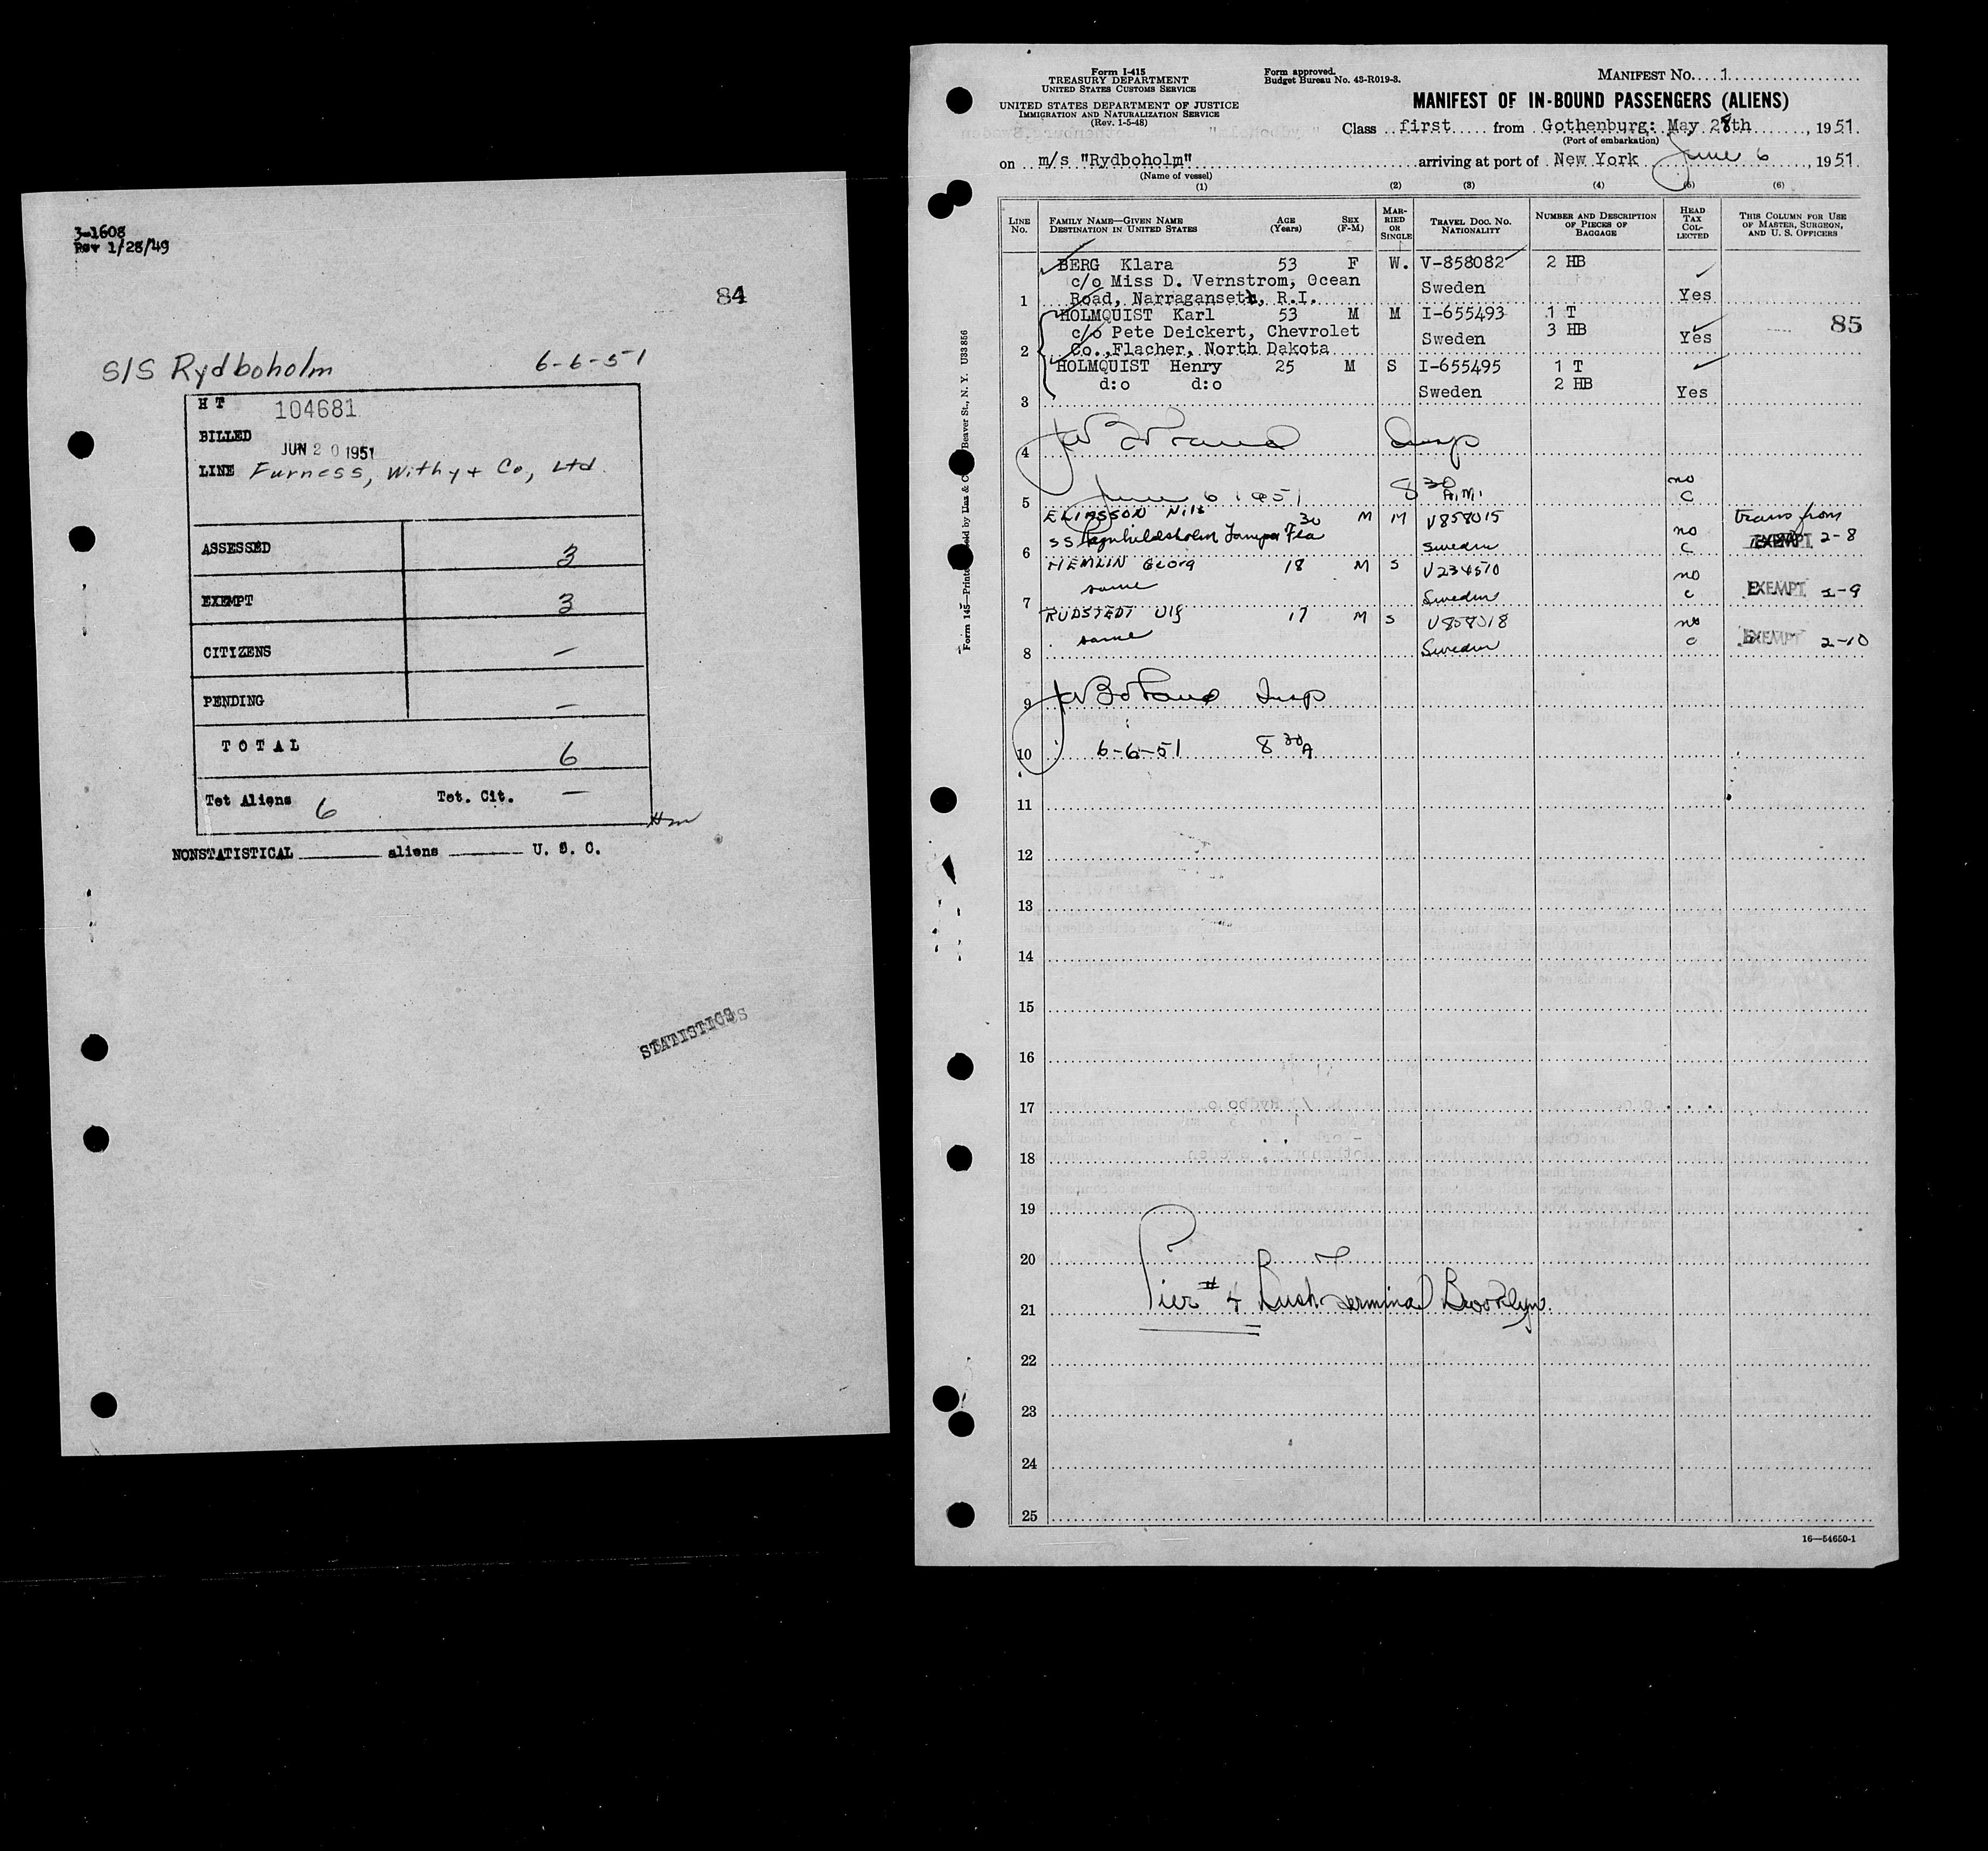 3-1608
Rev 1/28/49
84
S/S Rydboholm 6-6-51
HT 104681
BILLED
JUN 20 1951
LINE Furness, Withy + Co, Ltd.
ASSESSED 3
EXEMPT 3
CITIZENS —
PENDING —
TOTAL 6
Tot Aliens 6 Tot. Cit. —
NONSTATISTICAL aliens U. S. C.
STATISTICS
Form I-415
TREASURY DEPARTMENT
UNITED STATES CUSTOMS SERVICE
UNITED STATES DEPARTMENT OF JUSTICE
IMMIGRATION AND NATURALIZATION SERVICE
(Rev. 1-5-48)
Form approved.
Budget Bureau No. 43-R019-3.
MANIFEST No. 1
MANIFEST OF IN-BOUND PASSENGERS (ALIENS)
Class first from Gothenburg: May 28th, 1951.
(Port of embarkation)
on m/s "Rydboholm" arriving at port of New York June 6, 1951
(Name of vessel)
(1) (2) (3) (4) (5) (6)
LINE No.
FAMILY NAME—GIVEN NAME
DESTINATION IN UNITED STATES
AGE (Years)
SEX (F-M)
MARRIED OR SINGLE
TRAVEL DOC. NO.
NATIONALITY
NUMBER AND DESCRIPTION OF PIECES OF BAGGAGE
HEAD TAX COLLECTED
THIS COLUMN FOR USE OF MASTER, SURGEON, AND U. S. OFFICERS
BERG Klara 53 F W. V-858082 2 HB
c/o Miss D. Vernstrom, Ocean Sweden
1 Road, Narragansett, R.I. Yes
HOLMQUIST Karl 53 M M I-655493 1 T
85
c/o Pete Deickert, Chevrolet Sweden 3 HB Yes
2 Co., Flacher, North Dakota
HOLMQUIST Henry 25 M S I-655495 1 T
d:o d:o Sweden 2 HB Yes
3
4 Insp
5 June 6 1951 8 30 A.M. no c
ELIASSON Nils 30 M M V858015 trans from
6 SS Tampa Fla Sweden no c EXEMPT 2-8
HEMLIN Georg 18 M S V234510
7 same Sweden no c EXEMPT 2-9
RUDSTEDT Ulf 17 M S V858018
8 same Sweden no c EXEMPT 2-10
9 Insp
10 6-6-51 8 30 A
11
12
13
14
15
16
17
18
19
20
21 Pier # 4 Bush Terminal Brooklyn
22
23
24
25
16—54650-1